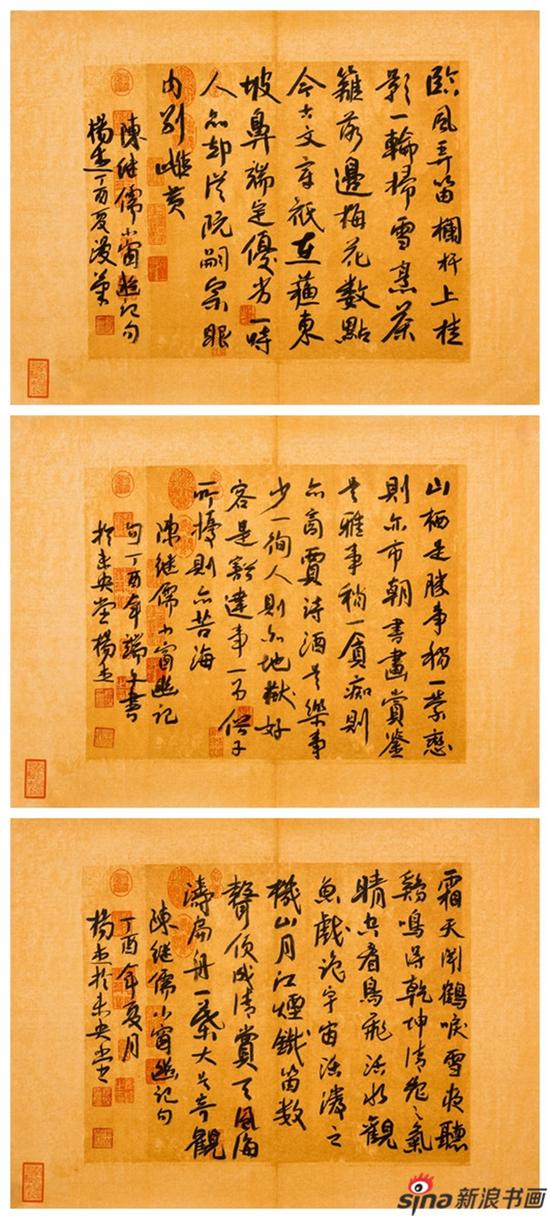 臨風弄笛欄杆上桂
影一輪掃雪烹茶
籬落邊梅花數點
今古文章祇在蘓東
坡鼻端定優劣一時
人品却從阮嗣宗眼
内别雌黄
陳继儒小窗幽记句
楊杰丁酉夏漫筆
山栖是勝事稍一縈戀
則亦市朝書畫賞鑒
是雅事稍一貪痴則
亦商賈詩酒是樂事
少一徇人則亦地獄好
客是豁達事一为俗子
所擾則亦苦海
陳继儒小窗幽記
句丁酉年端午書
於未央堂楊杰
霜天聞鶴唳雪夜聽
鷄鳴得乾坤清絶之氣
晴空看鳥飛活水觀
魚戲識宇宙活潑之
機山月江煙鐵笛数
聲便成清賞天風海
濤扁舟一葉大是奇觀
陳继儒小窗幽記句
丁酉年夏月
楊杰於未央堂
sina新浪书画